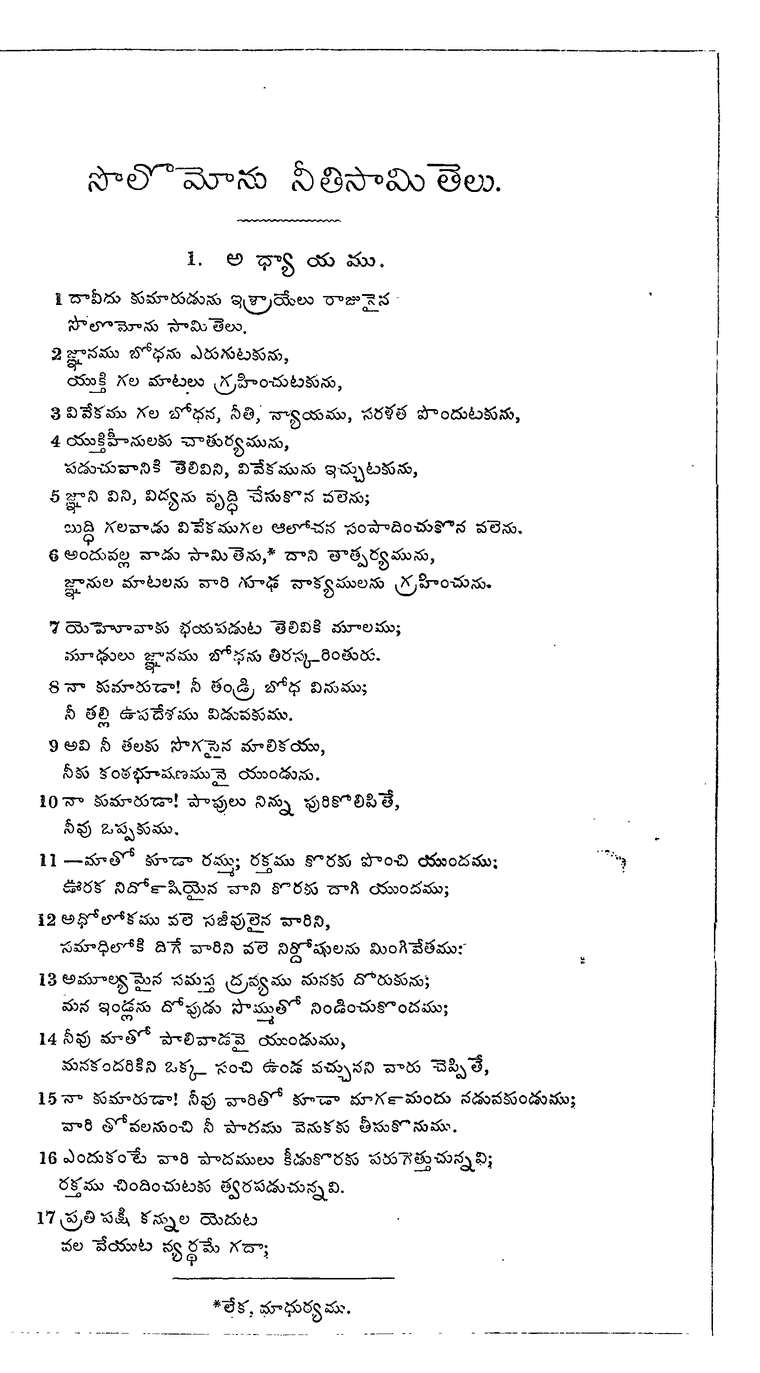 సొలొమోను నీతిసామితెలు.
1. అధ్యాయము.
1 దావీదు కుమారుడును ఇశ్రాయేలు రాజునైన
సొలొమోను సామితెలు.
2 జ్ఞానము బోధను ఎరుగుటకును,
యుక్తి గల మాటలు గ్రహించుటకును,
3 వివేకము గల బోధన, నీతి, న్యాయము, సరళత పొందుటకును,
4 యుక్తిహీనులకు చాతుర్యమును,
పడుచువానికి తెలివిని, వివేకమును ఇచ్చుటకును,
5 జ్ఞాని విని, విద్యను వృద్ధి చేసుకొన వలెను;
బుద్ధి గలవాడు వివేకముగల ఆలోచన సంపాదించుకొన వలెను.
6 అందువల్ల వాడు సామితెను,* దాని తాత్పర్యమును,
జ్ఞానుల మాటలను వారి గూఢ వాక్యములను గ్రహించును.
7 యెహెూవాకు భయపడుట తెలివికి మూలము;
మూఢులు జ్ఞానము బోధను తిరస్కరింతురు.
8 నా కుమారుడా! నీ తండ్రి బోధ వినుము;
నీ తల్లి ఉపదేశము విడువకుము.
9 అవి నీ తలకు సొగసైన మాలికయు,
నీకు కంఠభూషణమునై యుండును.
10 నా కుమారుడా! పాపులు నిన్ను పురికొలిపితే,
నీవు ఒప్పకుము.
11 —మాతో కూడా రమ్ము; రక్తము కొరకు పొంచి యుందము;
ఊరక నిదో౯షియైన వాని కొరకు దాగి యుందము;
12 అథోలోకము వలె సజీవులైన వారిని,
సమాధిలోకి దిగే వారిని వలె నిర్దోషులను మింగివేతము:
13 అమూల్యమైన సమస్త ద్రవ్యము మనకు దొరుకును;
మన ఇండ్లను దోపుడు సొమ్ముతో నిండించుకొందము;
14 నీవు మాతో పాలివాడవై యుండుము,
మనకందరికిని ఒక్క సంచి ఉండ వచ్చునని వారు చెప్పితే,
15 నా కుమారుడా! నీవు వారితో కూడా మాగ౯మందు నడువకుండుము;
వారి తోవలనుంచి నీ పాదము వెనుకకు తీసుకొనుము.
16 ఎందుకంటే వారి పాదములు కీడుకొరకు పరుగెత్తుచున్నవి;
రక్తము చిందించుటకు త్వరపడుచున్నవి.
17 ప్రతి పక్షి కన్నుల యెదుట
వల వేయుట వ్యర్థమే గదా;
*లేక, మాధుర్యము.